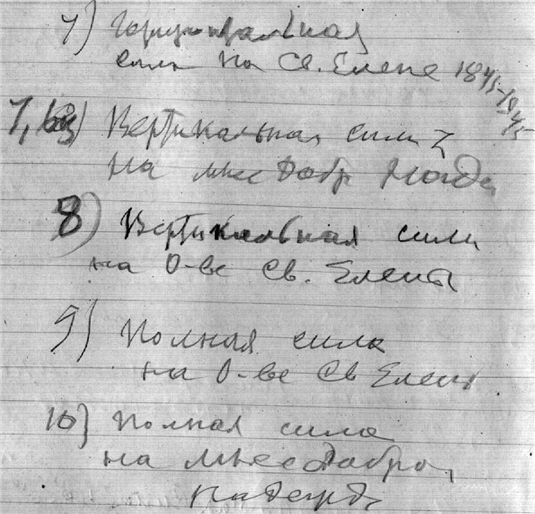 7) Горизонтальная
сила на Св. Елене 1845-1945
7, bis) Вертикальная сила Z
на мысе Добр Надежд
8) Вертикальная сила
на О-ве Св. Елены
9) Полная сила
на О-ве Св Елены
10) Полная сила
на мысе Добро,
Надежд